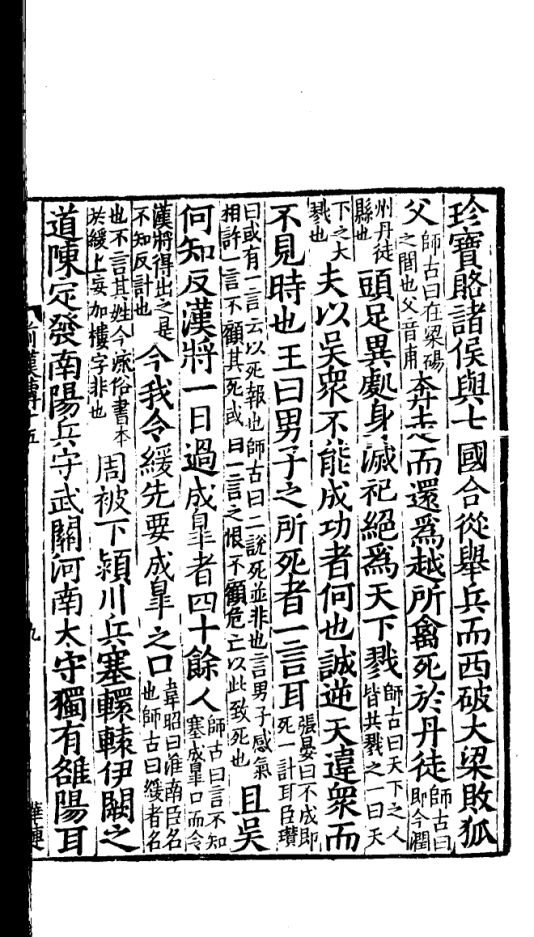 珍寶賂諸侯與七國合從舉兵而西破大梁敗狐
父師古曰在梁碭之間也父音甫奔走而還爲越所禽死於丹徒師古曰即今潤
州丹徒縣也頭足異處身滅祀絕爲天下戮師古曰天下之人皆共戮之一曰天
下之大戮也夫以吳衆不能成功者何也誠逆天違衆而
不見時也王曰男子之所死者一言耳張晏曰不成即死一計耳臣瓚
曰或有一言云以死報也師古曰二說死並非也言男子感氣相許一言不顧其死或曰一言之恨不顧危亡以此致死也且吳
何知反漢將一日過成皐者四十餘人師古曰言不知塞成皐口而令
漢將得出之是不知反計也今我令緩先要成皐之口韋昭曰淮南臣名也師古曰緩者名
也不言其姓今流俗書本於緩上妄加樓字非也周被下潁川兵塞轘轅伊闕之
道陳定發南陽兵守武關河南太守獨有雒陽耳
前漢傳十五
九